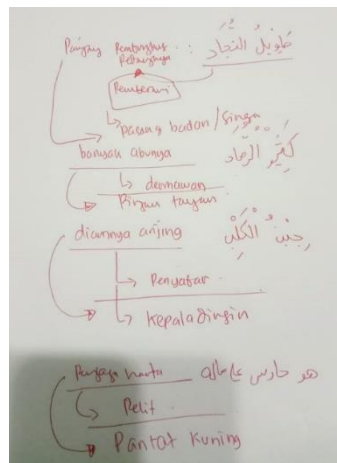 Panjang Pembungkus Pedangnya : طَوِيْلُ النِّجَادِ
Pemberani
↳ panjang badan / tinggi
banyak abunya كَثِيْرُ الرَّمَادِ
↳ dermawan
Ringan tangan
diamnya anjing جبن الْكَلْبِ
↳ Penyabar
↳ Kepala dingin
Penjaga harta هو حارس على ماله
↳ Pelit
Pantat Kuning